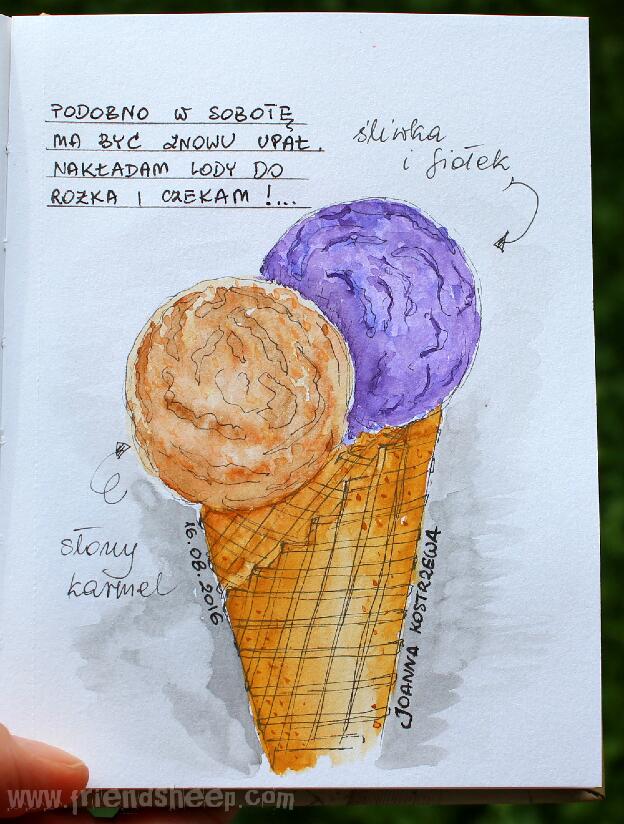 PODOBNO W SOBOTĘ
MA BYĆ ZNOWU UPAŁ.
NAKŁADAM LODY DO
ROŻKA I CZEKAM !...
śliwka
i fiołek
słony
karmel
16.08.2016
JOANNA KOSTRZEWA
www.friendsheep.com